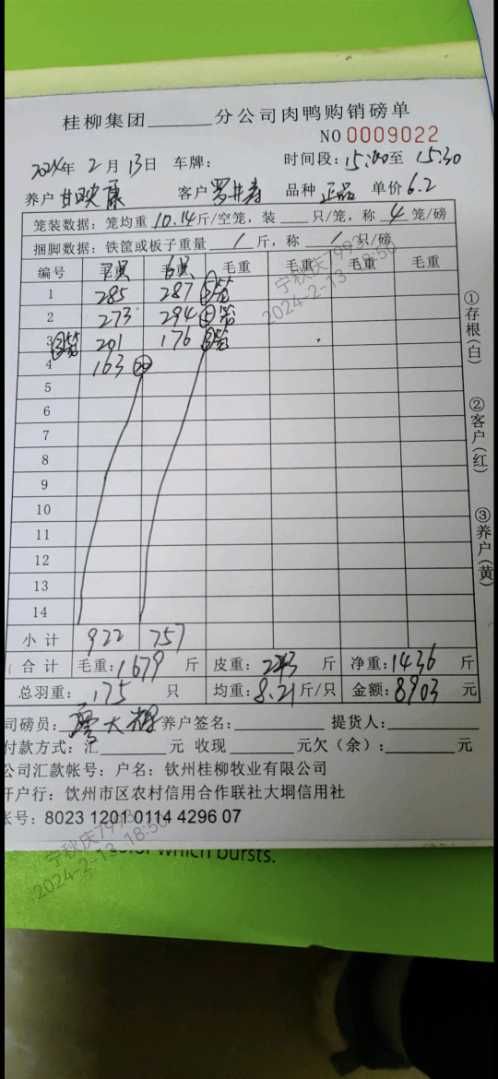 桂柳集团______分公司肉鸭购销磅单
NO 0009022
2024年 2月 13日 车牌: 时间段: 15:00至 15:30
养户 甘映康 客户 品种 正品 单价 6.2
笼装数据: 笼均重 10.14斤/空笼, 装 ___ 只/笼, 称 4 笼/磅
捆脚数据: 铁筐或板子重量 / 斤, 称 / 只/磅
编号 毛重 毛重 毛重 毛重
1 285 287 ⑤笼
2 273 294 ⑤笼
3 201 176 ③笼
4 163
5
6
7
8
9
10
11
12
13
14
小计 922 757
合计 毛重: 1679 斤 皮重: 243 斤 净重: 1436 斤
总羽重: 175 只 均重: 8.21斤/只 金额: 8903 元
司磅员: 养户签名:______ 提货人:______
付款方式: 汇______元 收现______元欠(余):______元
公司汇款帐号: 户名: 钦州桂柳牧业有限公司
开户行: 钦州市区农村信用合作联社大垌信用社
帐号: 8023 1201 0114 4296 07
①存根(白)
②客户(红)
③养户(黄)
宁秋庆7993
2024-2-13 18:50
宁秋庆7993
2024-2-13 18:50
which bursts.